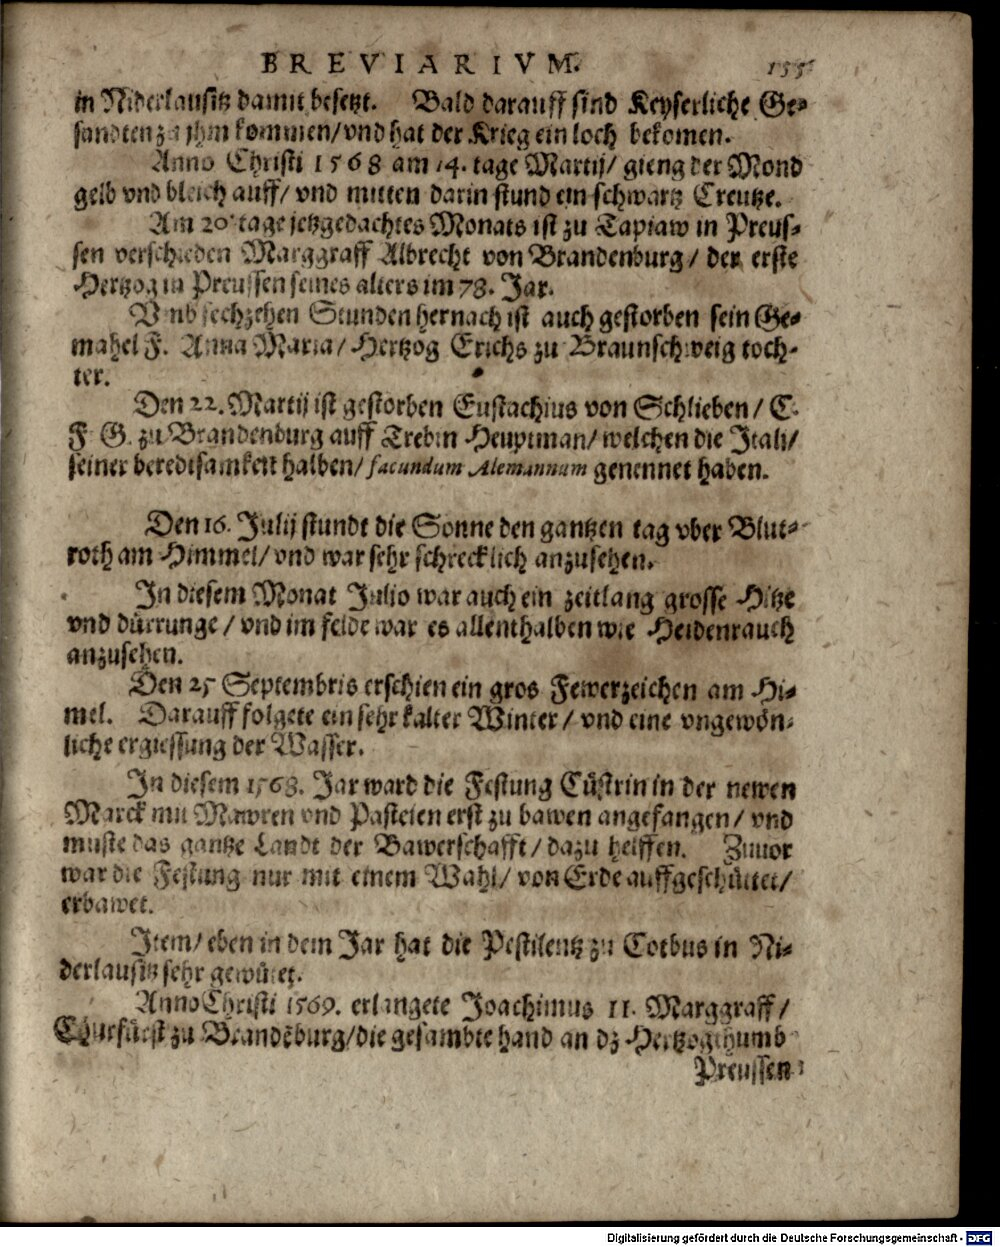 BREVIARIVM. 155
in Niderlausitz damit besetzt. Bald darauff sind Keyserliche Ge-
sandten zu ihm kommen/ vnd hat der Krieg ein loch bekomen.
Anno Christi 1568 am 14. tage Martij/ gieng der Mond
gelb vnd bleich auff/ vnd mitten darin stund ein schwartz Creutze.
Am 20 tage jetzgedachtes Monats ist zu Tapiaw in Preus-
sen verschieden Marggraff Albrecht von Brandenburg/ der erste
Hertzog in Preussen seines alters im 78. Jar.
Vnd sechzehen Stunden hernach ist auch gestorben sein Ge-
mahel F. Anna Maria/ Hertzog Erichs zu Braunschweig toch-
ter.
Den 22. Martij ist gestorben Eustachius von Schlieben/ C.
F G. zu Brandenburg auff Trebin Heuptman/ welchen die Itali/
seiner beredtsamkeit halben/ facundum Alemannum genennet haben.
Den 16. Julij stundt die Sonne den gantzen tag vber Blut-
roth am Himmel/ vnd war sehr schrecklich anzusehen.
In diesem Monat Julio war auch ein zeitlang grosse Hitze
vnd dürrunge/ vnd im felde war es allenthalben wie Heidenrauch
anzusehen.
Den 25 Septembris erschien ein gros Fewerzeichen am Hi-
mel. Darauff folgete ein sehr kalter Winter/ vnd eine vngewön-
liche ergiessung der Wasser.
In diesem 1568. Jar ward die Festung Cüstrin in der newen
Marck mit Mawren vnd Pasteien erst zu bawen angefangen/ vnd
muste das gantze Landt der Bawerschafft/ dazu helffen. Zuuor
war die Festung nur mit einem Wahl/ von Erde auffgeschüttet/
erbawet.
Item/ eben in dem Jar hat die Pestilentz zu Cotbus in Ni-
derlausitz sehr gewütet.
Anno Christi 1569. erlangete Joachimus II. Marggraff/
Churfürst zu Brandēburg/ die gesambte hand an dz Hertzogthumb
Preussen
Digitalisierung gefördert durch die Deutsche Forschungsgemeinschaft - DFG